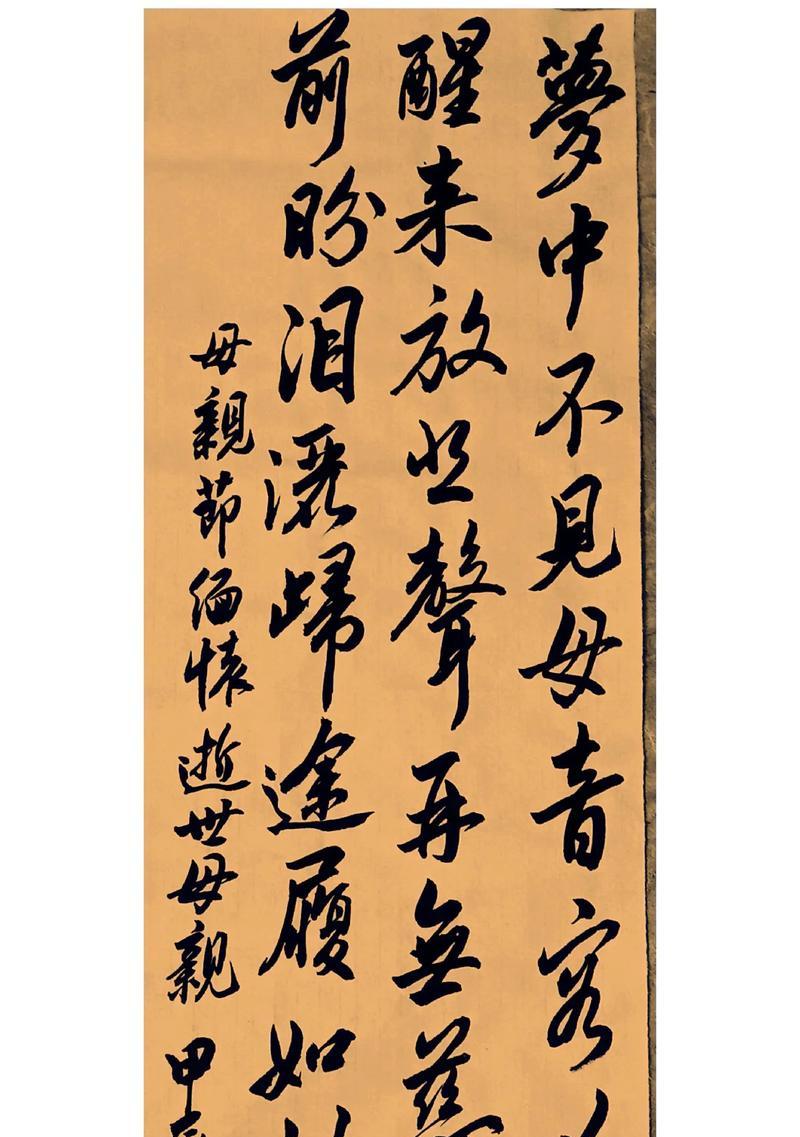 夢中不見母音容
醒来放悲聲再無慈
前盼泪灑歸途履如
母親節缅懷逝世母親甲辰